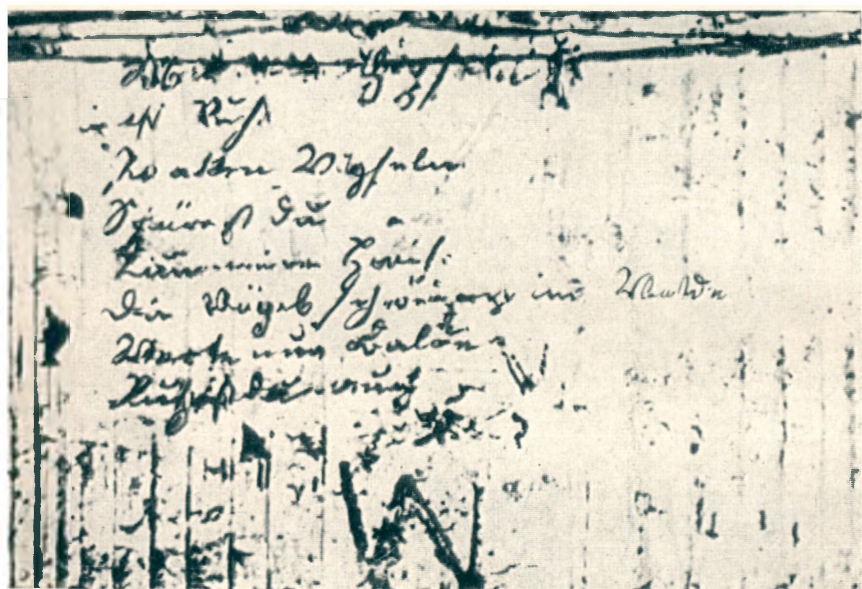 Über Gipfeln
ist Ruh
In allen Wipfeln
Spürest du
Kaum einen Hauch.
Die Vögel schweigen im Walde
Warte nur balde
du auch